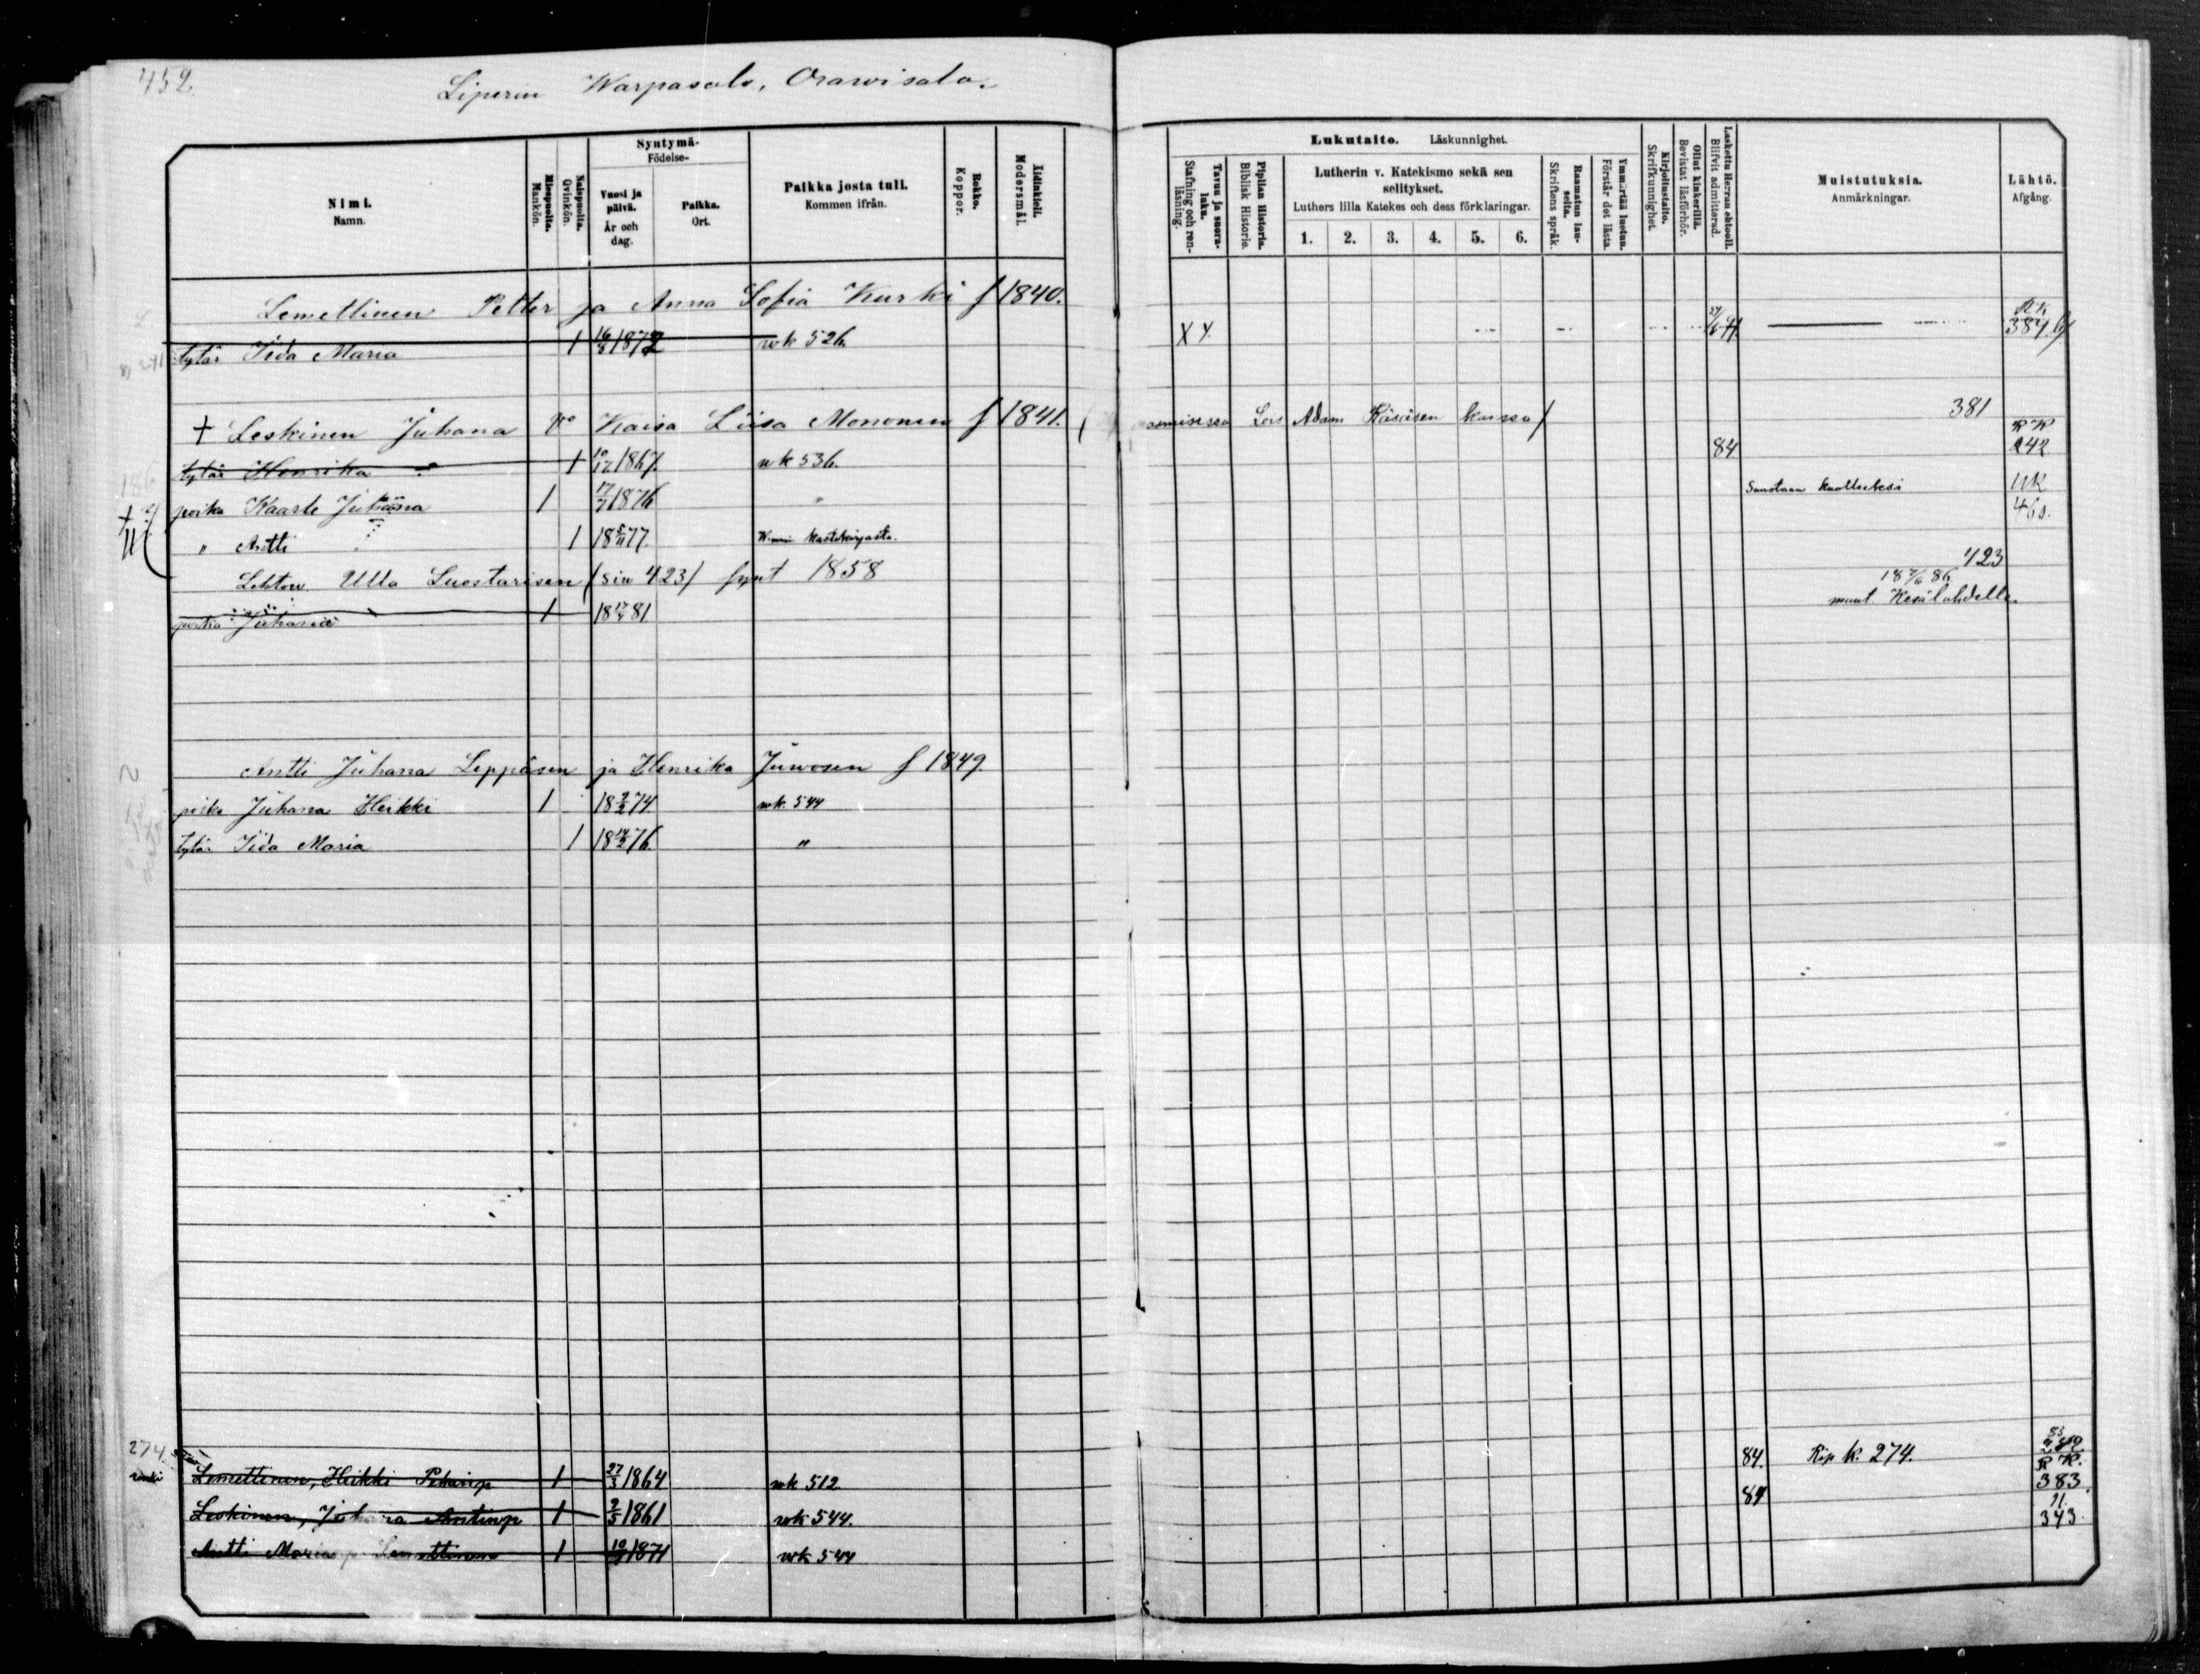 452.
Liperin Warpasalo, Orawisalo.
Nimi. Namn.
Miespuolia. Mankön.
Naispuolia. Qvinkön.
Syntymä- Födelse-
Vuosi ja päivä. År och dag.
Paikka. Ort.
Paikka josta tuli. Kommen ifrån.
Rokko. Koppor.
Äidinkieli. Modersmål.
Lukutaito. Läskunnighet.
Tavuu ja suora-luku. Stafning och ren-läsning.
Piplian Historia. Biblisk Historie.
Lutherin v. Katekismo sekä sen selitykset.
Luthers lilla Katekes och dess förklaringar.
1. 2. 3. 4. 5. 6.
Raamatun lau-seita. Skriftens språk.
Ymmärtää luetun. Förstår det lästa.
Kirjoitustaito. Skrifkunnighet.
Ollut kinkerillä. Bevistat läsförhör.
Laskettu Herran ehtooll. Blifvit admitterad.
Muistutuksia. Anmärkningar.
Lähtö. Afgång.
Lemettinen Petter ja Anna Sofia Kurki f 1840.
tytär Iida Maria 1 16/8 1872 wk 526. X X RK 384
+ Leskinen Juhana Kaisa Liisa Mononen f 1841. Lois Adam Räisäsen kanssa) 381
tytär Henrika 1 10/12 1867. wk 536. 84 RK 242
poika Kaarle Juhana 1 17/7 1876 " Sanotaan kuolleeksi UK 460.
" Antti 1 18 5/11 77. kastekirjasta.
Lehtow. Ulla Luostarisen (siw 423) synt 1858 423
poika Juhana 1 18 17/4 81 18 7/6 86 muut. Kesälahdelle.
Antti Juhana Leppäsen ja Henrika Juwosen f 1849.
poika Juhana Heikki 1 18 2/2 74. wk. 544
tytär Iida Maria 1 18 14/2 76. "
274 Lemettinen, Heikki Pekanp 1 27/3 1864 wk 512. 84. Rip k. 274.
Leskinen, Juhana Antinp 1 2/5 1861 wk 544. 84 RK. 383.
Antti Marianp Lemettinen 1 1871 wk 544 11. 343.